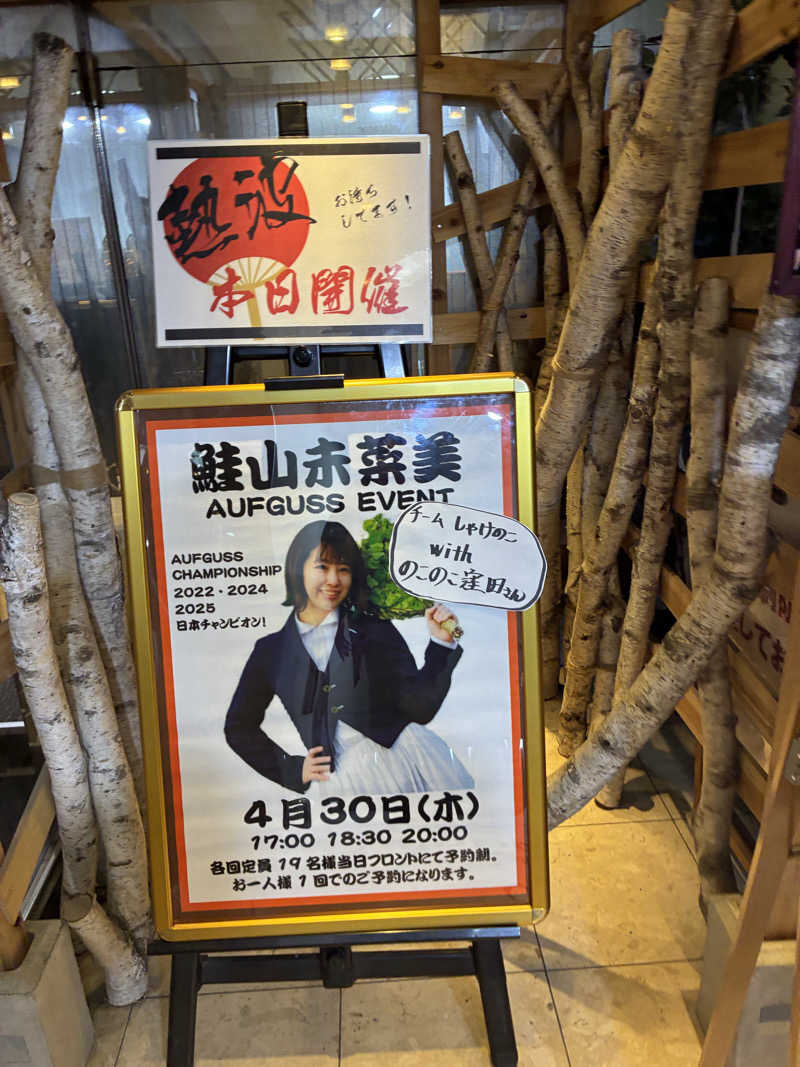 熱波
お待ち
してます!
本日開催
鮭山未菜美
AUFGUSS EVENT
チーム しゃけのこ
with
のこのこ窪田さん
AUFGUSS
CHAMPIONSHIP
2022・2024
2025
日本チャンピオン!
4月30日(木)
17:00 18:30 20:00
各回定員19名様当日フロントにて予約制。
お一人様1回でのご予約になります。